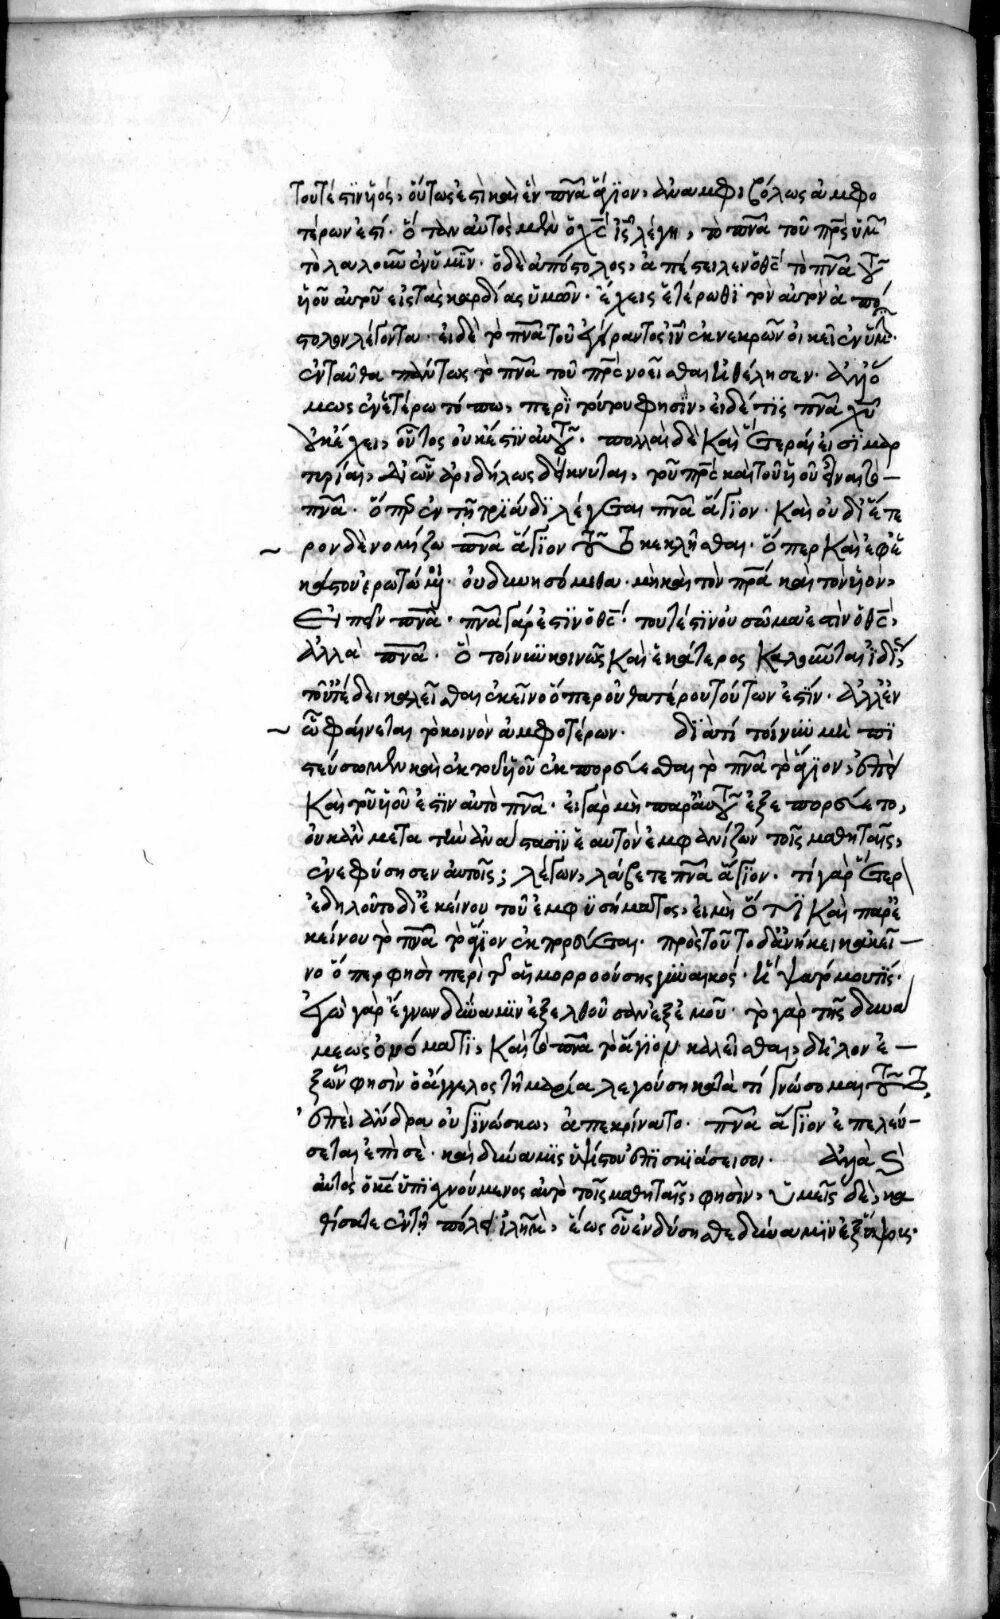 τουτέστιν υἱός, οὕτως ἐστὶ καὶ ἓν πνα ἅγιον, ἀναμφιβόλως ἀμφο
τέρων ἐστί· ὅταν αὐτὸς μὲν ὁ χς ις λέγῃ, τὸ πνα τοῦ πρς ὑμῶν
τὸ λαλοῦν ἐν ὑμῖν· ὁ δὲ ἀπόστολος, ἀπέστειλεν ὁ θς τὸ πνα τοῦ
υἱοῦ αὐτοῦ εἰς τὰς καρδίας ὑμῶν· ἔχεις ἑτέρωθι τὸν αὐτὸν ἀπό
στολον λέγοντα· εἰ δὲ τὸ πνα τοῦ ἐγείραντος ιν ἐκ νεκρῶν οἰκεῖ ἐν ὑμῖν·
ἐνταῦθα πάντως τὸ πνα τοῦ πρς νοεῖσθαι ἐθέλησεν·
μως ἐν ἑτέρω τόπω, περὶ τούτου φησὶν, εἰ δέ τις πνα χυ
οὐκ ἔχει, οὗτος οὐκ ἔστιν αὐτοῦ· πολλαὶ δὲ καὶ ἕτεραί εἰσι μαρ
τυρίαι, δι ὧν ἀριδήλως δείκνυται, τοῦ πρς καὶ τοῦ υἱοῦ εἶναι τὸ
πνα· ὅπερ ἐν τῇ τριάδι λέγεται πνα ἅγιον· καὶ οὐ δι ἕτε
ρον δὲ νομίζω πνα ἅγιον τοῦτο κεκλῆσθαι· ὅπερ καὶ ἐφ ἑ
κάστου ἐρωτώμενοι· οὐ δυνησόμεθα· μὴ καὶ τὸν πρα καὶ τὸν υἱὸν,
εἰπεῖν πνα· πνα γάρ ἐστιν ὁ θς· τουτέστιν οὐ σῶμα ἐστὶν ὁ θς,
ἀλλὰ πνα· ὃ τοίνυν κοινῶς καὶ ἑκάτερος καλοῦνται ἰδίως
τοῦτ ἔδει καλεῖσθαι ἐκεῖνο ὅπερ οὐ θατέρου τούτων ἐστίν· ἀλλ ἐν
ᾧ φαίνεται τὸ κοινὸν ἀμφοτέρων· διατί τοίνυν μὴ πι
στεύσομεν καὶ ἐκ τοῦ υἱοῦ ἐκπορεύεσθαι τὸ πνα τὸ ἅγιον, ἐπεὶ
καὶ τοῦ υἱοῦ ἐστιν αὐτὸ πνα· εἰ γὰρ μὴ παρ αὐτοῦ ἐξεπορεύετο,
οὐκ ἂν μετα τὴν ἀνάστασιν ἑαυτὸν ἐμφανίζων τοῖς μαθηταῖς,
ἐνεφύσησεν αὐτοῖς; λέγων, λάβετε πνα ἅγιον· τί γὰρ ἕτερον
ἐδηλοῦτο δι ἐκείνου τοῦ ἐμφυσήματος, εἰ μὴ ὅτι καὶ παρ ἐ
κείνου τὸ πνα τὸ ἅγιον ἐκπορεύεται· πρὸς τοῦτο δ ἀνήκει κἀκεῖ
νο ὅπερ φησὶ περὶ τῆς αἱμορροούσης γυναικός· ἥψατό μου τίς·
ἐγὼ γὰρ ἔγνων δύναμιν ἐξελθοῦσαν ἐξ ἐμοῦ· τὸ γὰρ τῆς δυνά
μεως ὀνόματι, καὶ τὸ πνα τὸ ἅγιον καλεῖσθαι, δῆλον ἐ
ξ ὧν φησὶν ὁ ἄγγελος τῇ μαρία λεγούσῃ κατὰ τί γνώσομαι τοῦτο,
ἐπεὶ ἄνδρα οὐ γινώσκω, ἀπεκρίνατο· πνα ἅγιον ἐπελεύ
σεται ἐπὶ σὲ· καὶ δύναμις ὑψίστου ἐπισκιάσει σοι·
αὐτὸς ὁ κς ὑπισχνούμενος αὐτὸ τοῖς μαθηταῖς, φησὶν, ὑμεῖς δὲ, κα
θίσατε ἐν τῇ πόλει ιλημ, ἕως οὗ ἐνδύσησθε δύναμιν ἐξ ὕψους·